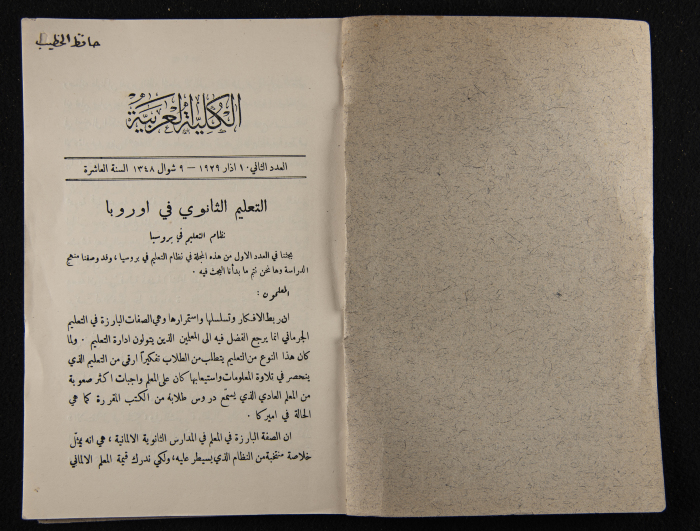 حافظ الخطيب
الكلية العربية
العدد الثاني ١٠ اذار ١٩٢٩ — ٩ شوال ١٣٤٨ السنة العاشرة
التعليم الثانوي في اوروبا
نظام التعليم في بروسيا
بحثنا في العدد الاول من هذه المجلة في نظام التعليم في بروسيا ، وقد وصفنا منهج
الدراسة وها نحن نتم ما بدأنا البحث فيه .
المعلمون :
ان ربط الافكار وتسلسلها واستمرارها وهي الصفات البارزة في التعليم
الجرماني انما يرجع الفضل فيه الى المعلمين الذين يتولون ادارة التعليم . ولما
كان هذا النوع من التعليم يتطلب من الطلاب تفكيراً ارقى من التعليم الذي
ينحصر في تلاوة المعلومات واستيعابها كان على المعلم واجبات اكثر صعوبة
من المعلم العادي الذي يستمّع دروس طلابه من الكتب المقررة كما هي
الحالة في اميركا .
ان الصفة البارزة في المعلم في المدارس الثانوية الالمانية ، هي انه يمثّل
خلاصة منتخبة من النظام الذي يسيطر عليه، ولكي ندرك قيمة المعلم الالماني